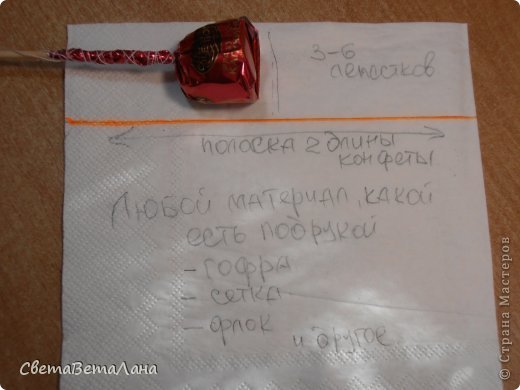 3-6
лепестков
полоска 2 длины
конфеты
Любой материал, какой
есть под рукой
- гофра
- сетка
- флок
и другое
СветаВетаЛана
© Страна Мастеров